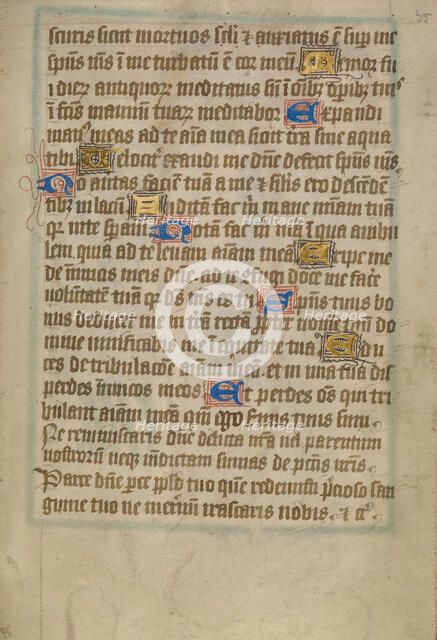 35
scuris sicut mortuos sc̄li ⁊ anxiatus ē sup̄ me
sp̄us m̄s ī me turbatū ē cor meū Memor fui
dierū antiquorū meditatus sū ī oībꝫ op̄ibꝫ tuis
ī fc̄is manuū tuarū meditabor Expandi
man⁹ meas ad te aīa mea sicut tr̄a sine aqua
tibi Velocit̄ exaudi me dn̄e defecit sp̄us m̄s
No auertas faciē tuā a me ⁊ similis ero descendē
tibꝫ in lacū Auditā fac m̄ mane mīam tuā
qr̄ in te sp̄aui Notā fac m̄ uiā ī qua ambu
lem quia ad te leuaui aīam meā Eripe me
de inimicis meis dn̄e ad te ↄfugi doce me facere
uolūtatē tuā qr̄ ds̄ m̄s es tu Sp̄us tuus bo
nus deducet me in tr̄am rectā ꝓpter nomē tuū do
mine uiuificabis me ī equitate tua Edu
ces de tribulacōe aīam meā et in mīa tua dis
perdes inimicos meos Et perdes oēs qui tri
bulant aīam meā qm̄ ego seruus tuus sum
Ne reminiscaris dn̄e delicta nr̄a ul̄ parentum
nostrorū neqꝫ uindictam sumas de pc̄tis nr̄is
Parce dn̄e parce ppl̄o tuo quē redemisti p̄cioso san
guine tuo ne in et̄nū irascaris nobis ⁊ c̄
Heritage
Images